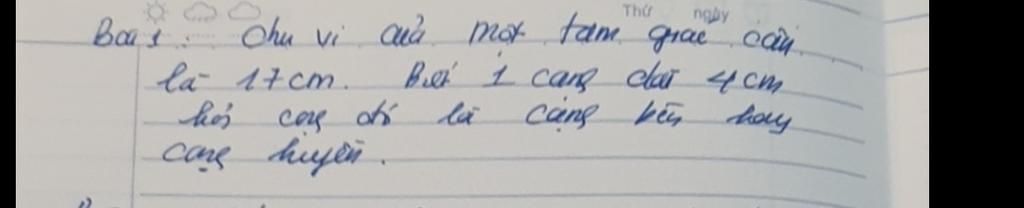 Thứ ngày
Bài 1: Chu vi của một tam giác cân
là 17cm. Biết 1 cạng dài 4cm
hỏi cạng đó là cạng bên hay
cạng huyền.